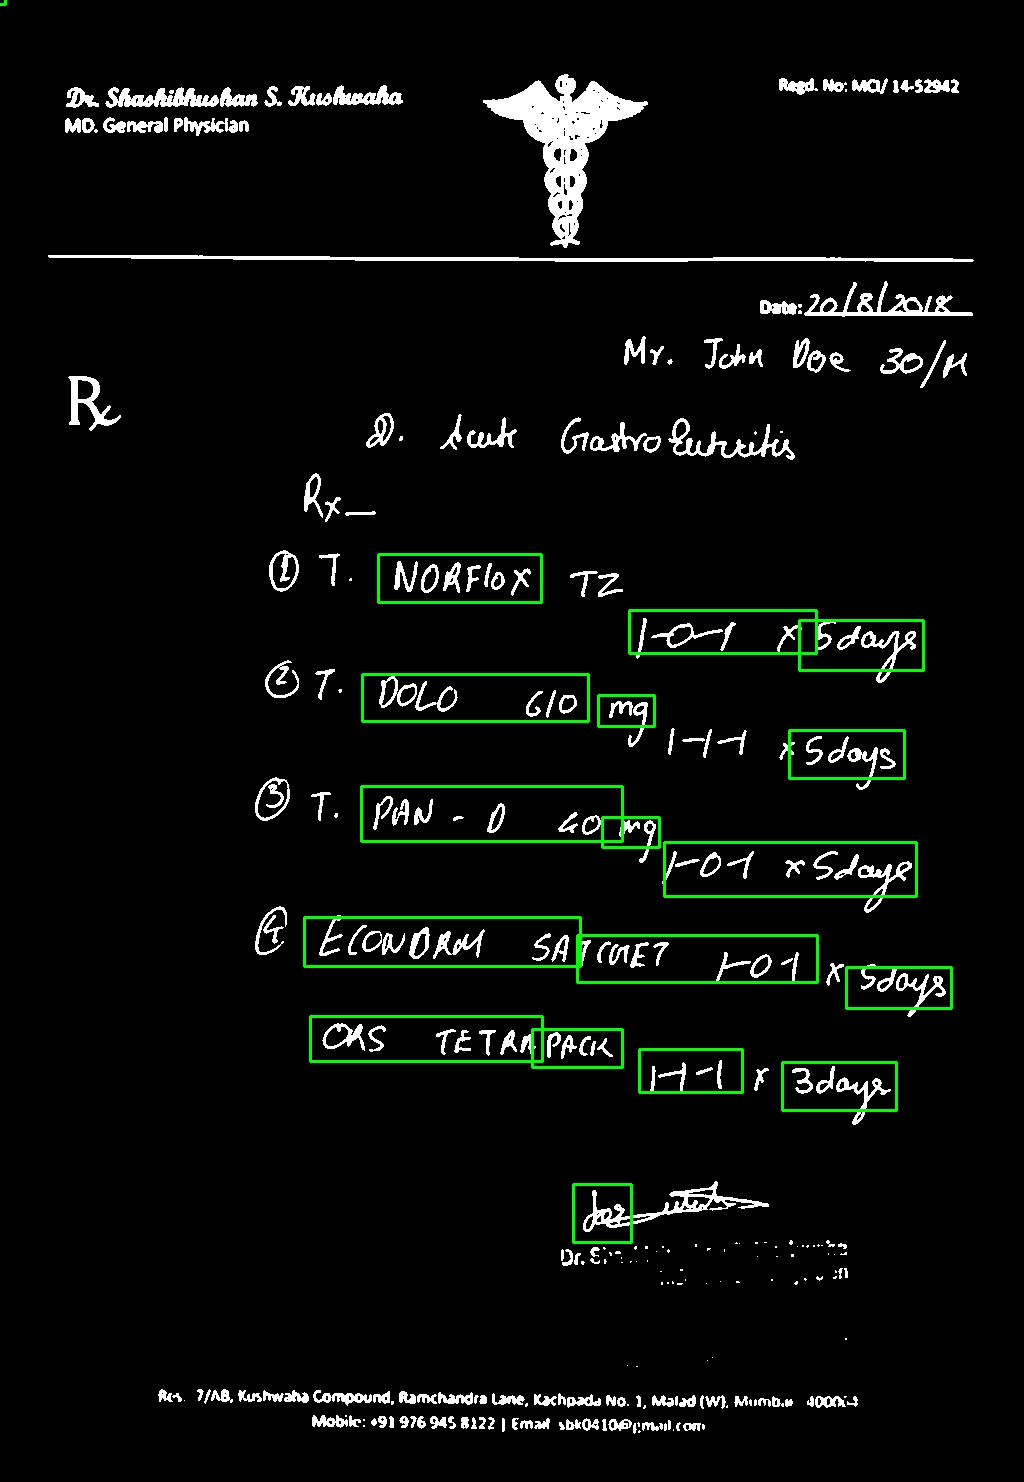 Dr. Shashibhushan S. Kushwaha
MD. General Physician
Regd. No: MCI/ 14-52942
Date: 20/8/2018
Mr. John Doe 30/M
Rx
D. Acute GastroEuteritis
Rx
① T. NORFlox TZ
1-0-1 x 5days
② T. DOLO 610 mg
1-1-1 x 5days
③ T. PAN - D 40 mg
1-0-1 x 5days
④ ECONORM SATCHET 1-0-1 x 5days
ORS TETRA PACK
1-1-1 x 3days
Dr.
Res. 7/AB, Kushwaha Compound, Ramchandra Lane, Kachpada No. 1, Malad (W), Mumbai 400064
Mobile: +91 976 945 8122 | Email sbk0410@gmail.com